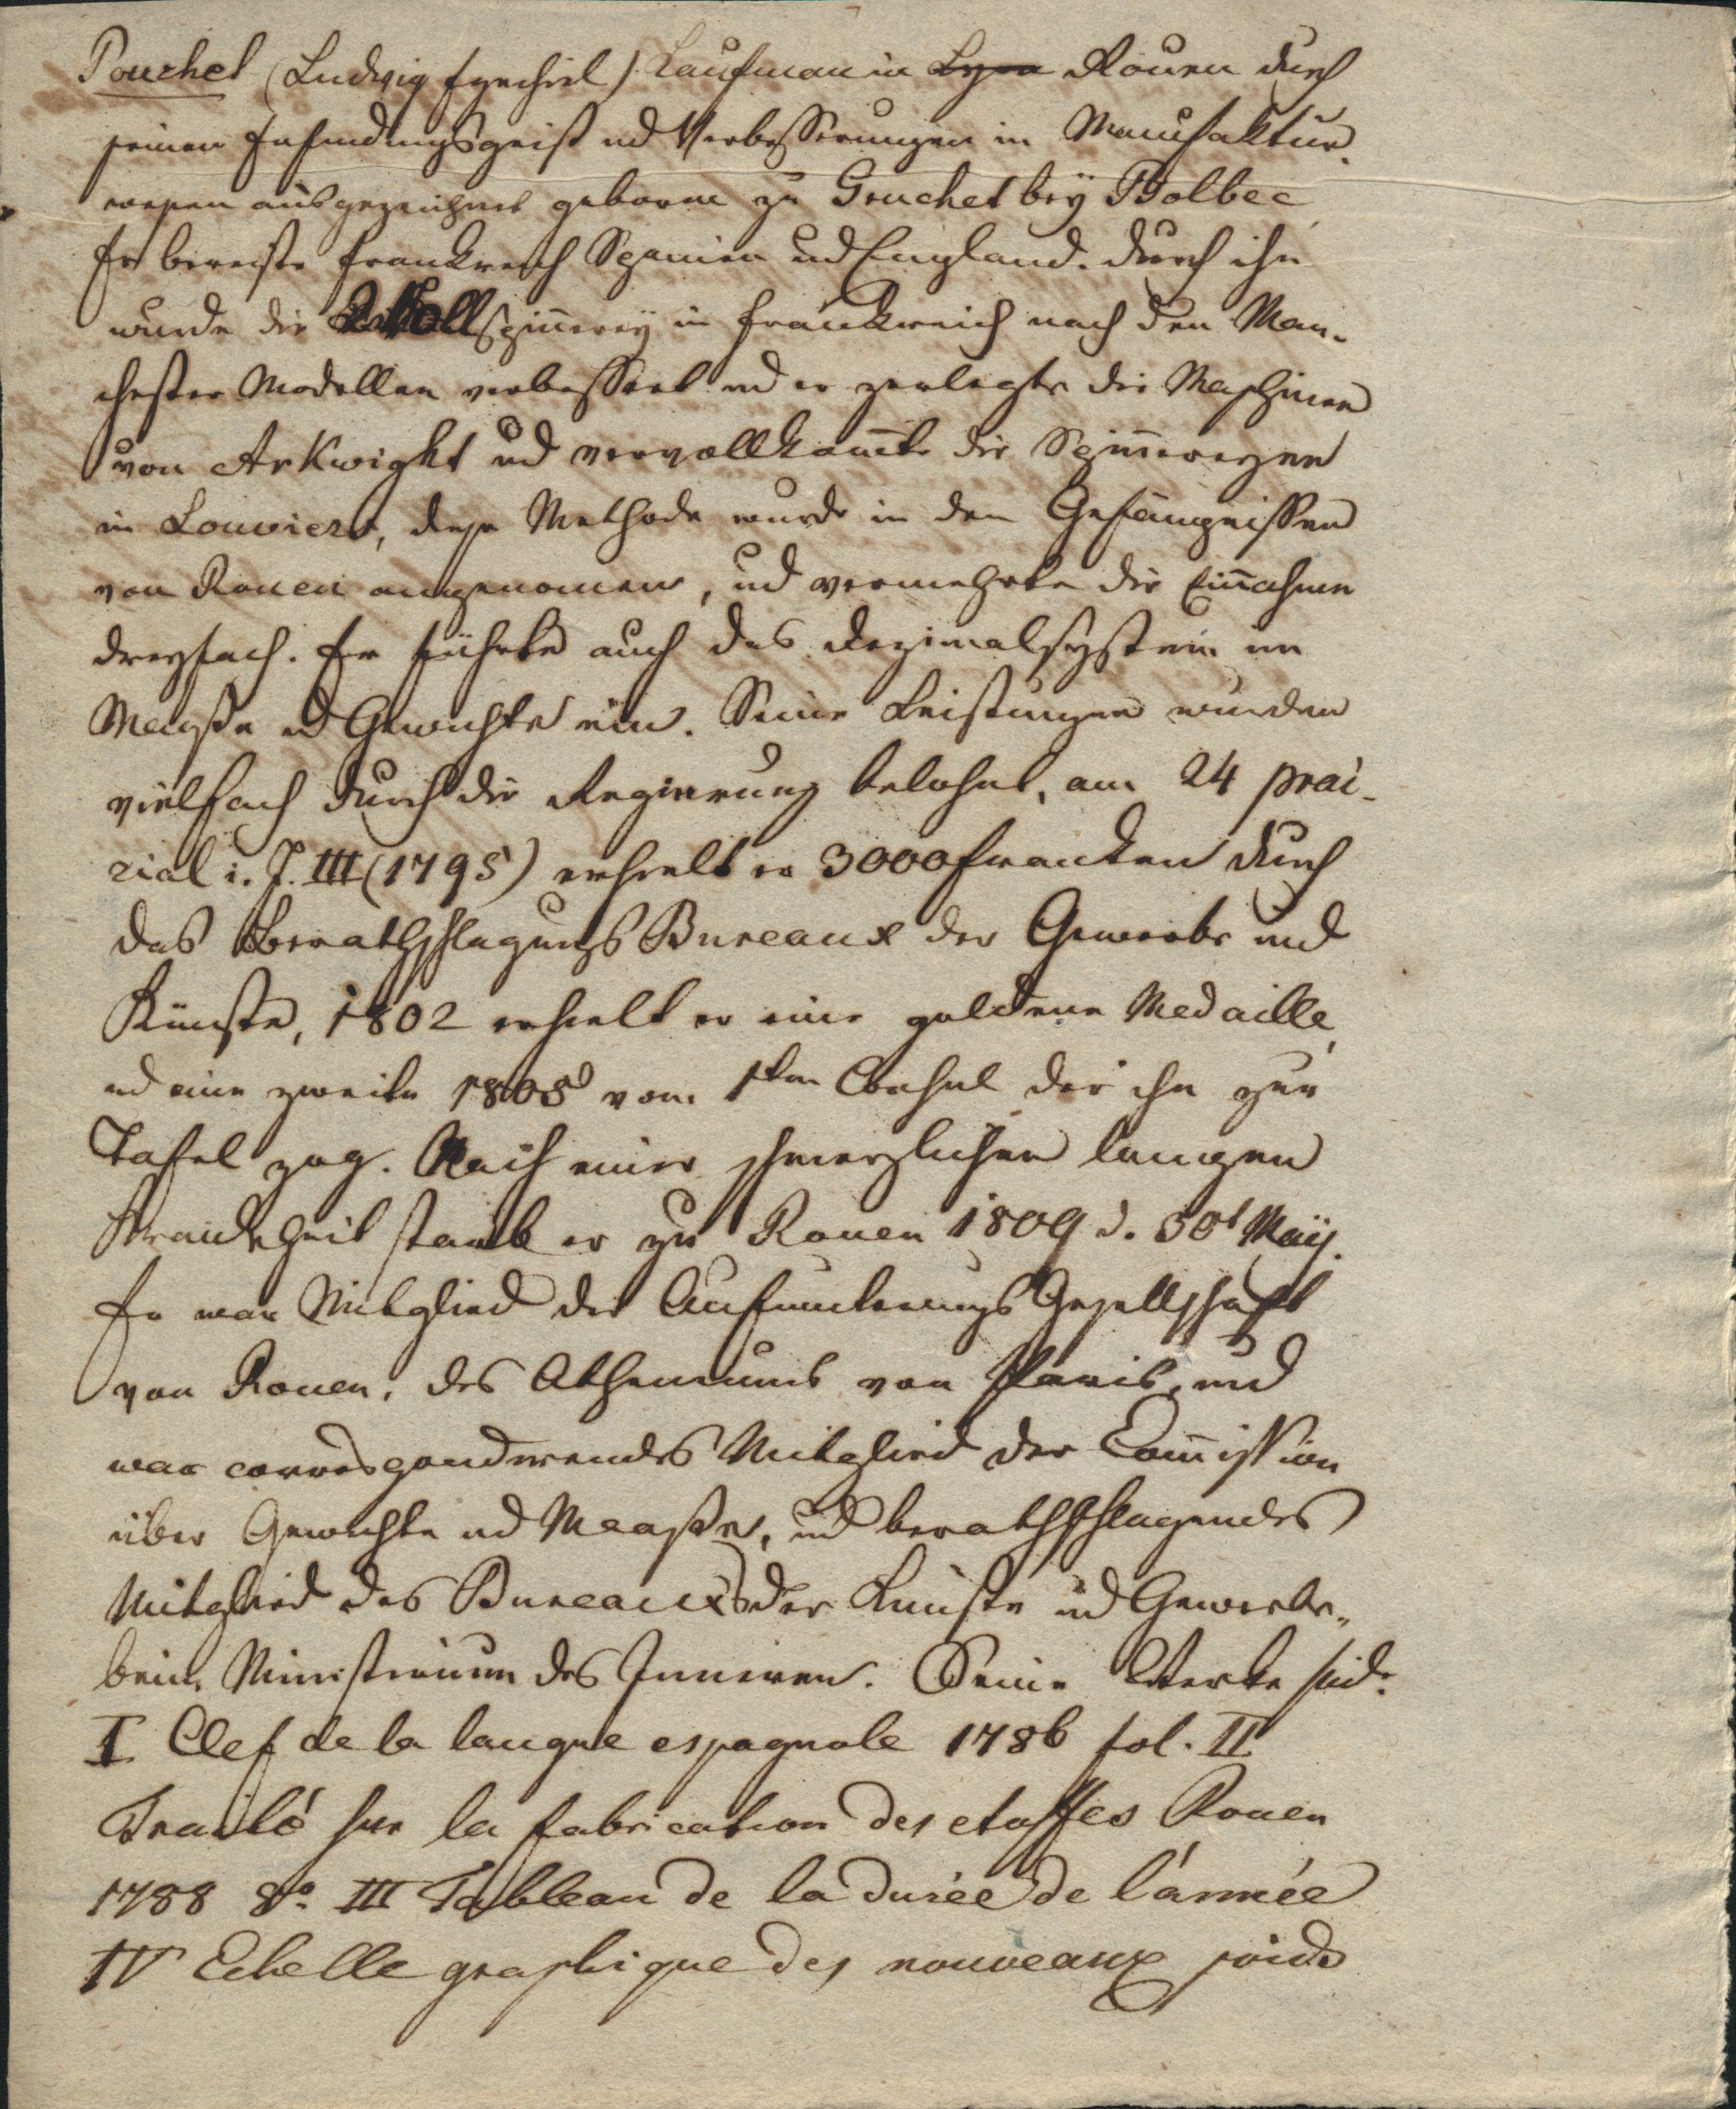 Pouchet (Ludwig Ezechiel) Kaufman in Lyon Rouen durch
seinen Erfindungsgeist und Verbesserungen in Manufaktur-
wesen ausgezeichnet geboren zu Gruchet bey Bolbec
Er bereiste Frankreich Spanien und England. durch ihn
wurde die Wollspinnerey in Frankreich nach den Man-
chester Modellen verbessert und er zerlegte die Maschinen
von Arkwight und vervollkommte die Spinnereyen
in Louviers, diese Methode wurde in den Gefängnissen
von Rouen angenomen, und vermehrte die Einnahme
dreyfach. Er führte auch das Dezimalsystem in
Maaße und Gewichte ein. Seine Leistungen wurden
vielfach durch die Regierung belohnt, am 24 prai-
rial i. J. III (1795) erhielt er 3000 Franken durch
das Berathschlagungs Bureaux der Gewerbe und
Künste, 1802 erhielt er eine goldene Medaille,
und eine zweite 1803 vom 1ten Consul der ihn zur
Tafel zog. Nach einer schmerzlichen langen
Krankheit starb er zu Rouen 1809 d. 30t Maÿ.
Er war Mitglied der Aufmunterungs Gesellschaft
von Rouen, des Athenaeums von Paris, und
war correspondirendes Mitglied der Commission
über Gewichte und Maaße, und berathschlagendes
Mitglied des Bureaux der Künste und Gewerbe,
beim Ministerium des Inneren. Seine Werke sind.
I Clef de la langue espagnole 1786 fol. II
Traité sur la fabrication des etoffes Rouen
1788 8o. III Tableau de la durée de l'année
IV Echelle graphique des nouveaux poids